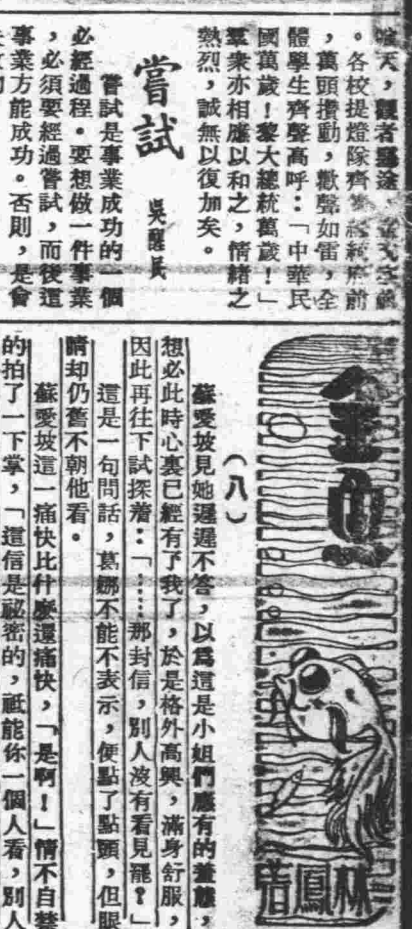 喧天,觀者塞途,
。各校提燈隊齊集總統府前
,萬頭攢動,歡聲如雷,全
體學生齊聲高呼:「中華民
國萬歲!黎大總統萬歲!」
羣衆亦相應以和之,情緒之
熱烈,誠無以復加矣。
嘗試
吳醒民
嘗試是事業成功的一個
必經過程。要想做一件事業
,必須要經過嘗試,而後這
事業方能成功。否則,是會
金魚
林鳳著
(八)
蘇愛坡見她遲遲不答,以爲這是小姐們應有的羞態,
想必此時心裏已經有了我了,於是格外高興,滿身舒服,
因此再往下試探着:「……那封信,別人沒有看見罷?」
這是一句問話,葛娜不能不表示,便點了點頭,但眼
睛却仍舊不朝他看。
蘇愛坡這一痛快比什麼還痛快,「是啊!」情不自禁
的拍了一下掌,「這信是祕密的,祇能你一個人看,別人